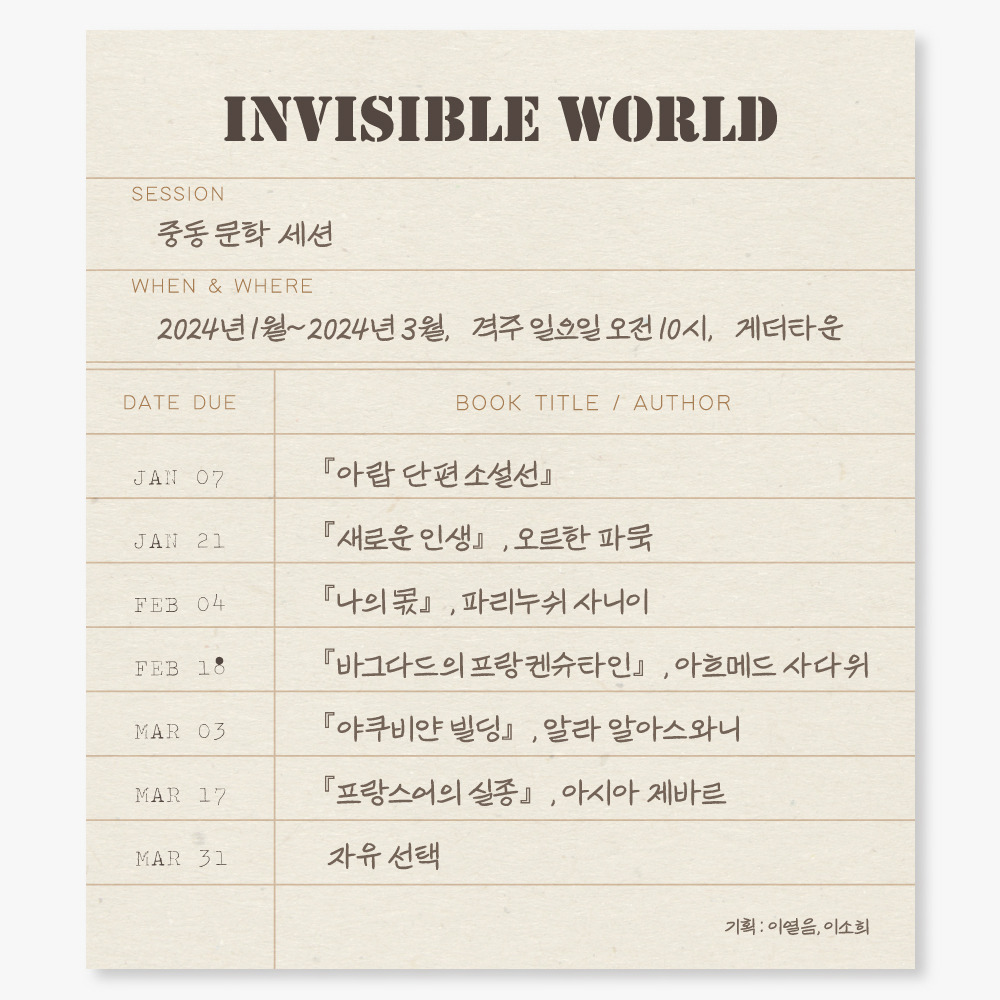 INVISIBLE WORLD
SESSION
중동 문학 세션
WHEN & WHERE
2024년 1월~2024년 3월, 격주 일요일 오전 10시, 게더타운
DATE DUE BOOK TITLE / AUTHOR
JAN 07 『아랍 단편 소설선』
JAN 21 『새로운 인생』, 오르한 파묵
FEB 04 『나의 몫』, 파리누쉬 사니이
FEB 18 『바그다드의 프랑켄슈타인』, 아흐메드 사다위
MAR 03 『야쿠비얀 빌딩』, 알라 알아스와니
MAR 17 『프랑스어의 실종』, 아시아 제바르
MAR 31 자유 선택
기획 : 이열음, 이소희